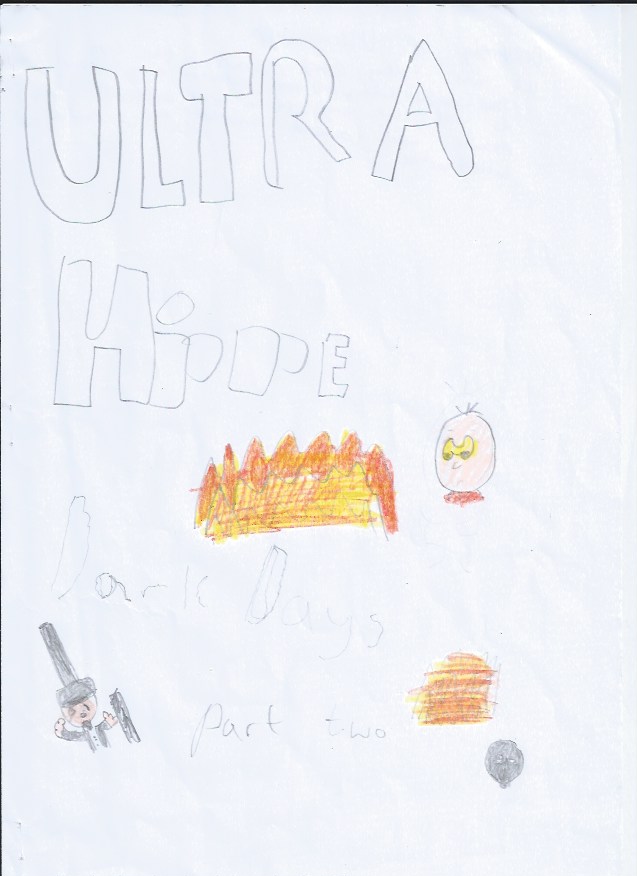 ULTRA
HippE
Dark Days
part two